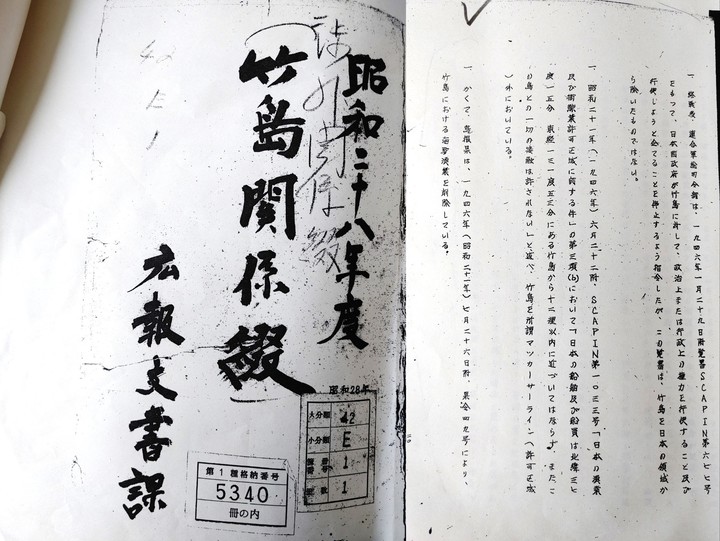 昭和二十八年度
渉外関係綴
竹島関係綴
広報文書課
42
E
1
昭和28年
大分類 42
小分類 E
1
1
第1種格納番号
5340
冊の内
一 終戦後、連合軍総司令部は、一九四六年一月二十九日附覚書SCAPIN第六七七号
をもつて、日本国政府が竹島に対して、政治上または行政上の権力を行使すること及び
行使しようと企てることを停止するよう指令したが、この覚書は、竹島を日本の領域か
ら除いたものではない。
一 昭和二十一年(一九四六年)六月二十二附、SCAPIN第一〇三三号「日本の漁業
及び捕鯨業許可区域に関する件」の第三項(b)において「日本の船舶及び船員は北緯三七
度一五分 東経一三一度五三分にある竹島から十二浬以内に近づいてはならず、またこ
の島との一切の接触は許されない」と述べ、竹島を所謂マッカーサーライン(許可区域
)外においている。
一 かくて、島根県は、一九四六年(昭和二十一年)七月二十六日附、県令四九号により、
竹島における海驢漁業を削除している。